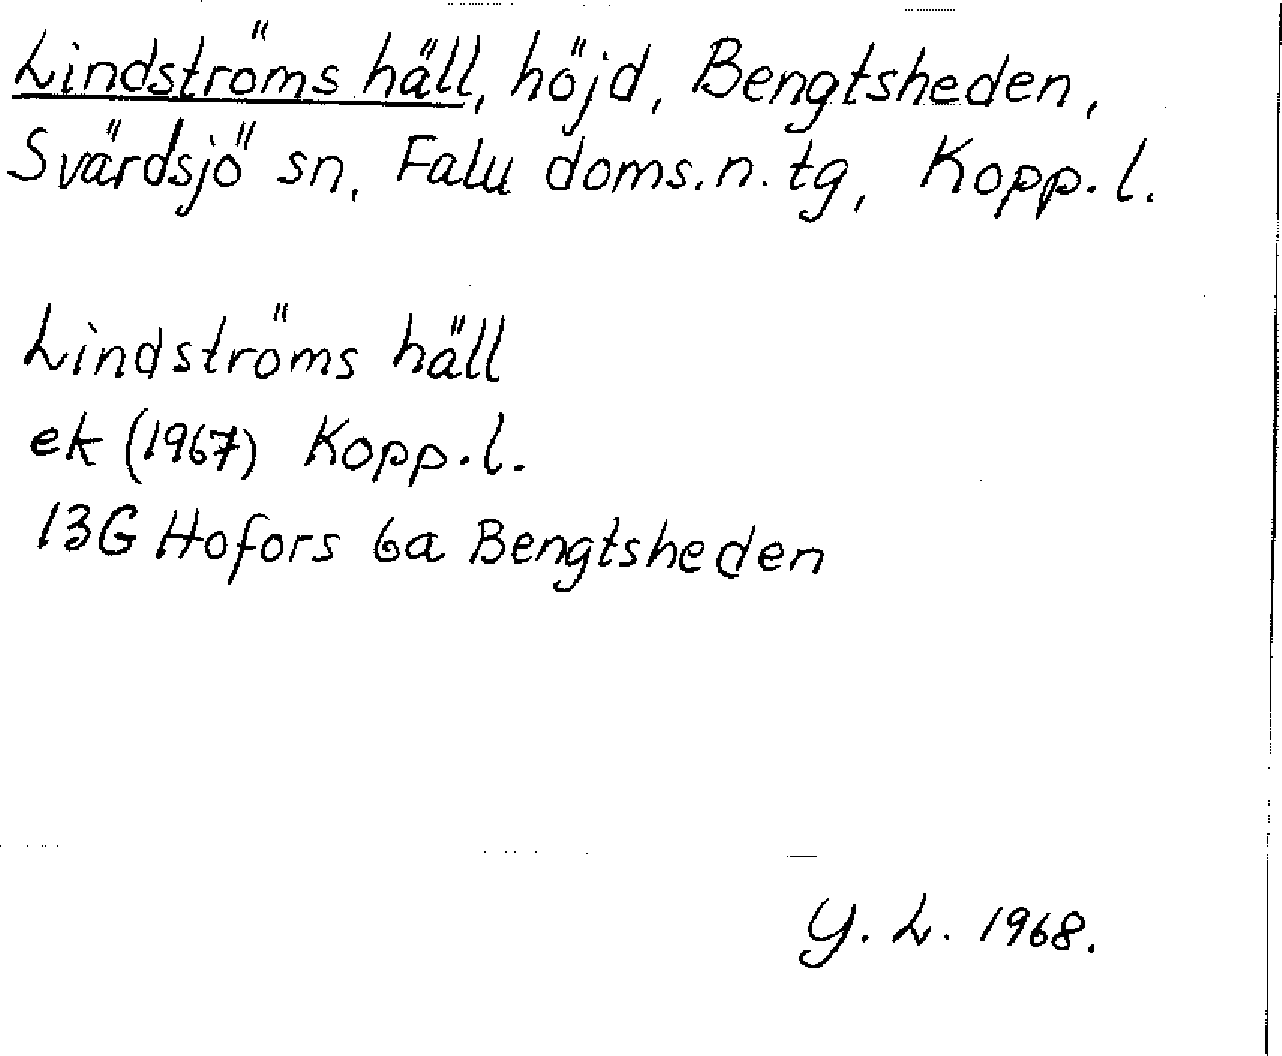 Lindströms häll, höjd, Bengtsheden,
Svärdsjö sn, Falu doms.n. tg, Kopp.l.
Lindströms häll
ek (1967) Kopp.l.
13G Hofors 6a Bengtsheden
Y. L. 1968.